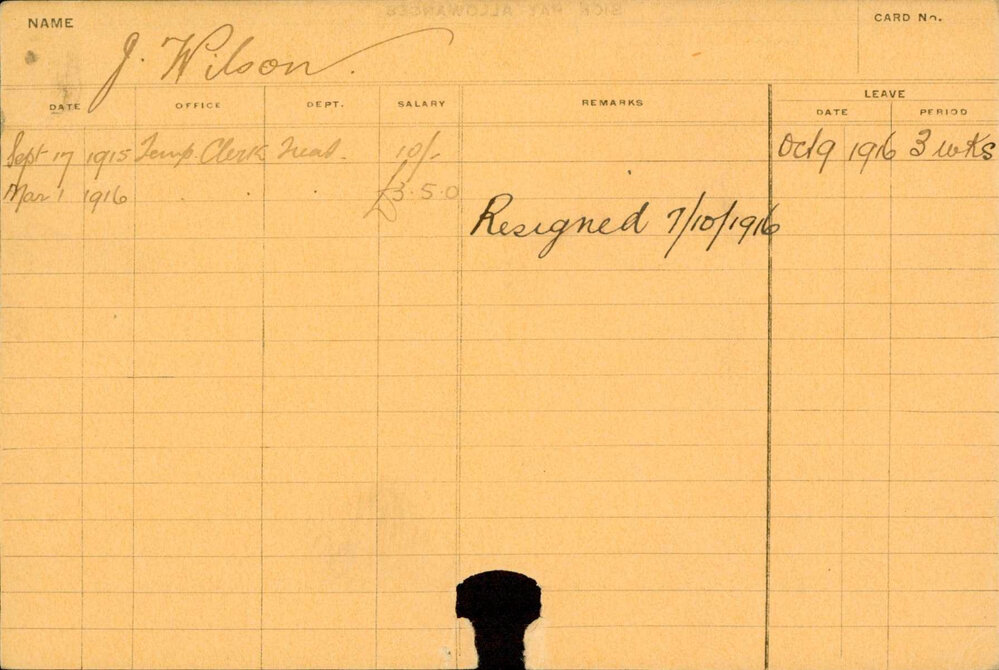 NAME
CARD No.
J. Wilson.
DATE OFFICE DEPT. SALARY REMARKS LEAVE
DATE PERIOD
Sept 17 1915 Temp. Clerk Treas. 10/- Oct 9 1916 3 wks
Mar 1 1916 " " £3.5.0
Resigned 7/10/1916